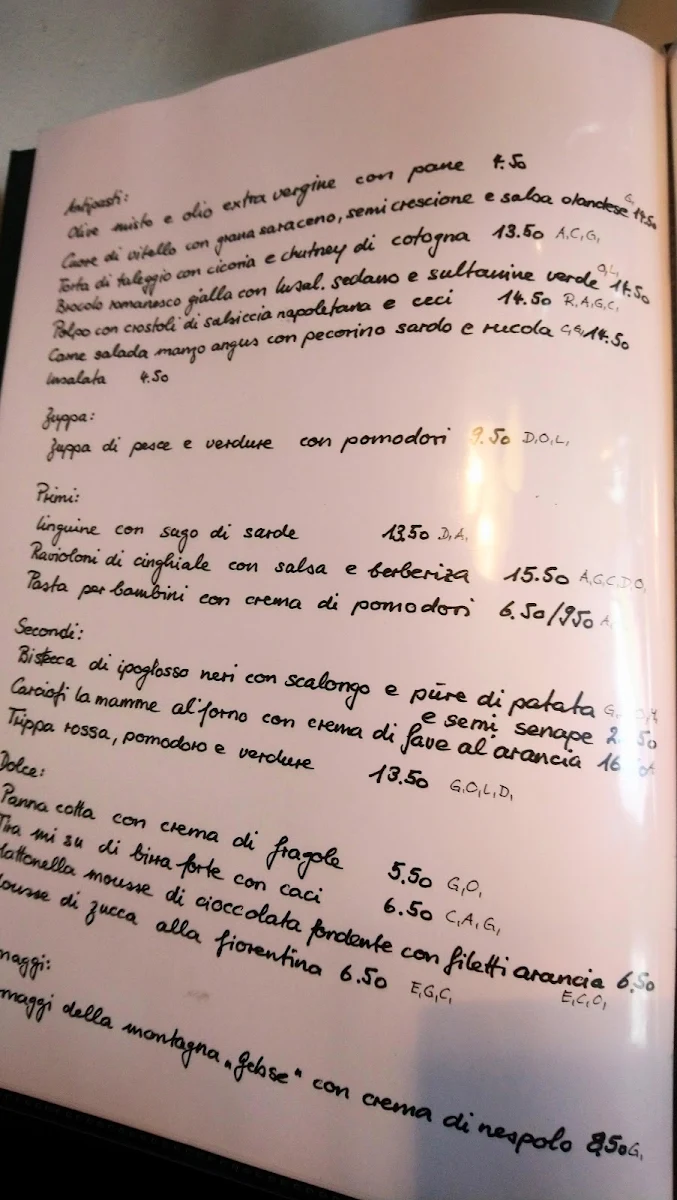 Antipasti:
Olive misto e olio extra vergine con pane 4.50
Cuore di vitello con grana saraceno, semi crescione e salsa olandese G, 14.50
Torta di taleggio con cicoria e chutney di cotogna 13.50 A,C,G,
Brocolo romanesco gialla con Insal. sedano e sultanine verde G,L 11.50
Polpo con crostoli di salsiccia napoletana e ceci 14.50 R,A,G,C,
Carne salada manzo angus con pecorino sardo e rucola G, 14.50
Insalata 4.50
Zuppa:
Zuppa di pesce e verdure con pomodori 9.50 D,O,L,
Primi:
Linguine con sugo di sarde 13.50 D,A,
Ravioloni di cinghiale con salsa e berberiza 15.50 A,G,C,D,O,
Pasta per bambini con crema di pomodori 6.50/9.50 A,
Secondi:
Bistecca di ipoglosso neri con scalongo e pūre di patata G,
e semi senape
Carciofi la mamme al'forno con crema di fave al'arancia 16
Trippa rossa, pomodoro e verdure 13.50 G,O,L,D,
Dolce:
Panna cotta con crema di fragole 5.50 G,O,
Tira mi su di birra forte con caci 6.50 C,A,G,
Mattonella mousse di cioccolata fondente con filetti arancia 6.50
E,C,O,
ousse di zucca alla fiorentina 6.50 E,G,C,
maggi:
maggi della montagna „Gebse“ con crema di nespolo 8.50 G,